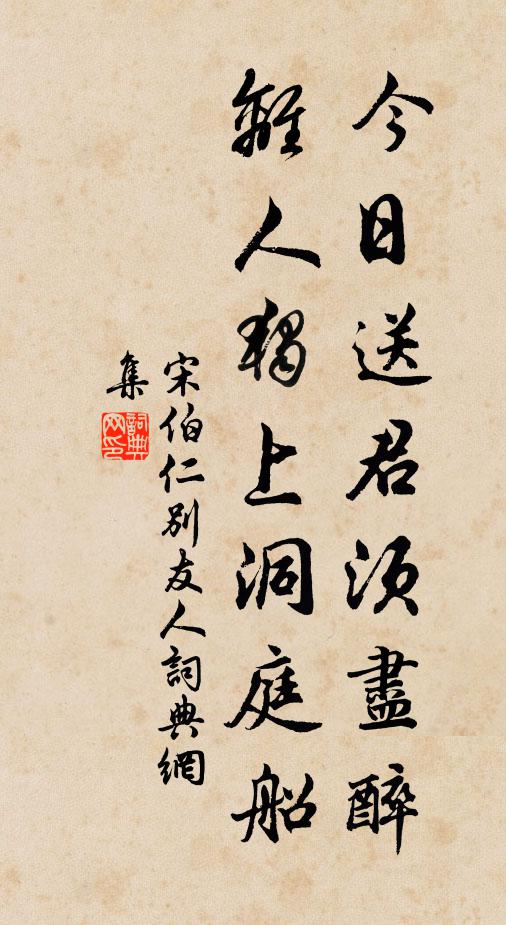 今日送君須盡醉
離人獨上洞庭船
宋伯仁別友人詞典網
集
詞典網印